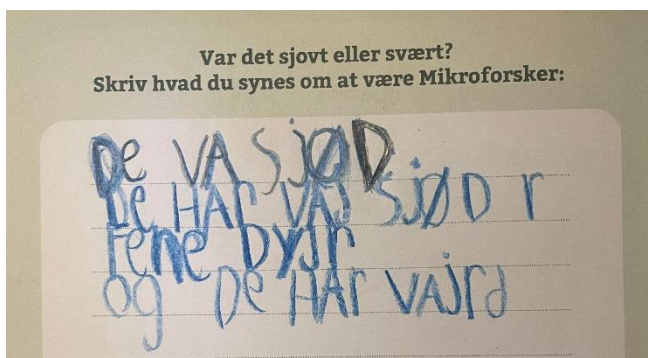 Var det sjovt eller svært?
Skriv hvad du synes om at være Mikroforsker:
De VA SjØD
De HAr VAj SjØD r
Fene Dyjr
og De HAr VAjrd